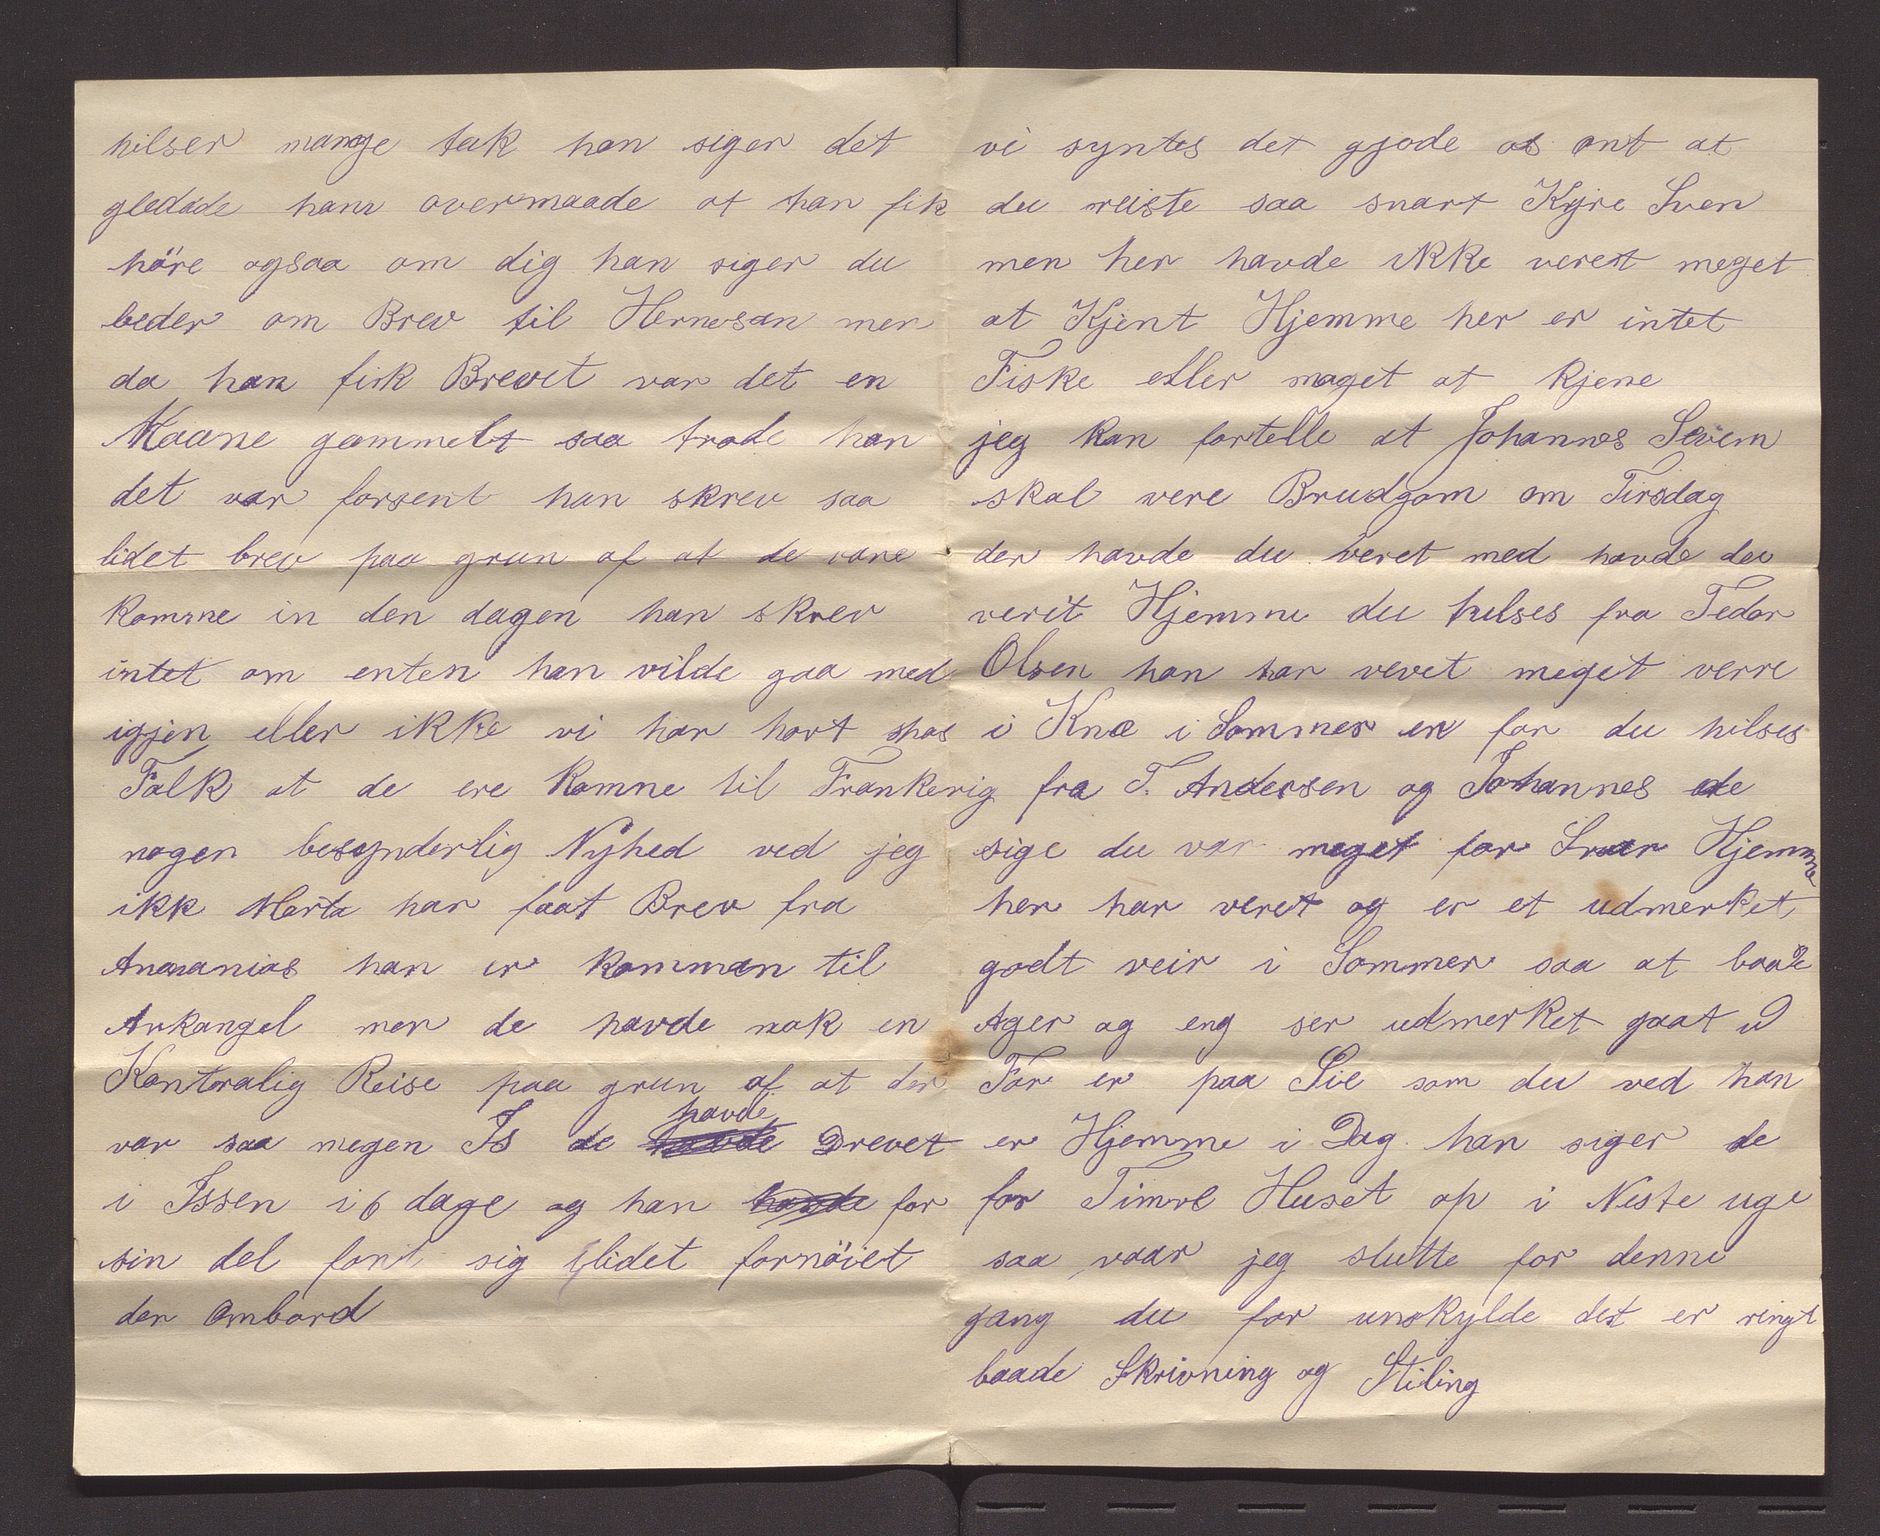 hilser mange tak han siger det
gledede ham overmaade at han fik
höre ogsaa om dig han siger du
beder om Brev til Hernosan men
da han fisk Brevet var det en
Maane gammelt saa trode han
det var forsent han skrev saa
lidet brev paa grun af at de vare
komme in den dagen han skrev
intet om enten han vilde gaa med
igjen eller ikke vi har hort hos
Folk at de ere komne til Frankerig
nogen besynderlig Nyhed ved jeg
ikk Marta har faat Brev fra
Ananias han er komman til
Arkangel men de havde nok en
Kontralig Reise paa grun af at der
var saa megen Is de havde Drevet
i Issen i 6 dage og han for
sin del font sig lidet fornöiet
der ombord
vi syntes det gjode os ont at
du reiste saa snart Kjre Sven
men her havde ikke verest meget
at Kjent Hjemme her er intet
Fiske eller maget at kjene
jeg kan fortelle at Johannes Sevem
skal vere Brudgom om Tirsdag
der havde du veret med havde du
verit Hjemme du hilses fra Tedor
Olsen han har vevet meget verre
i Knæ i Sommer en for du hilses
fra T. Andersen og Johannes de
sige du var meget for Snar Hjemme
her har veret og er et udmerket
godt veir i Sommer saa at baade
Ager og eng ser udmerket gaat ud
Far er paa Sie som du ved han
er Hjemme i Dag han siger de
for Timre Huset op i Neste uge
saa vaar jeg slutte for denne
gang du for unskylde det er ringt
baade Skrivning og Stiling